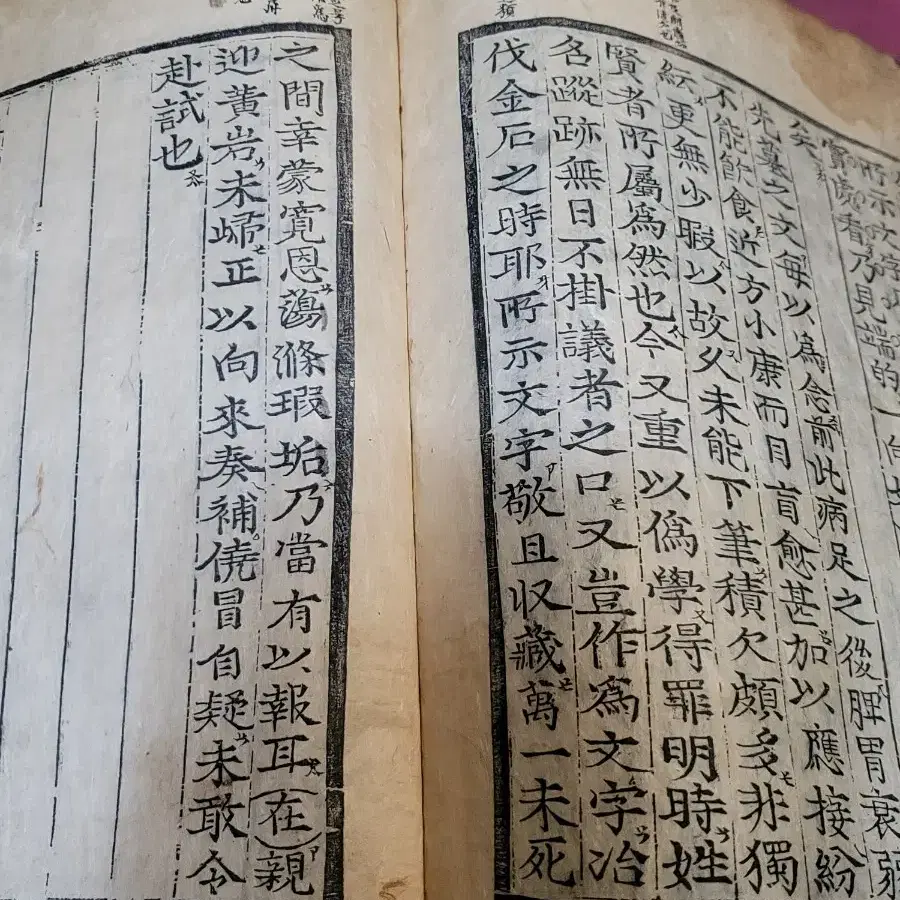 所示文字
實處看乃見端的一向
矣
先墓之文每以爲念前此病足之後脾胃衰弱
不能飲食近方小康而目盲愈甚加以應接紛
紜更無少暇以故久未能下筆積欠頗多非獨
賢者所屬爲然也今又重以僞學得罪明時姓
名蹤跡無日不掛議者之口又豈作爲文字冶
伐金石之時耶所示文字敬且収藏萬一未死
之間幸蒙寬恩蕩滌瑕垢乃當有以報耳(在)親
迎黃岩未歸正以向來奏補僥冒自疑未敢令
赴試也